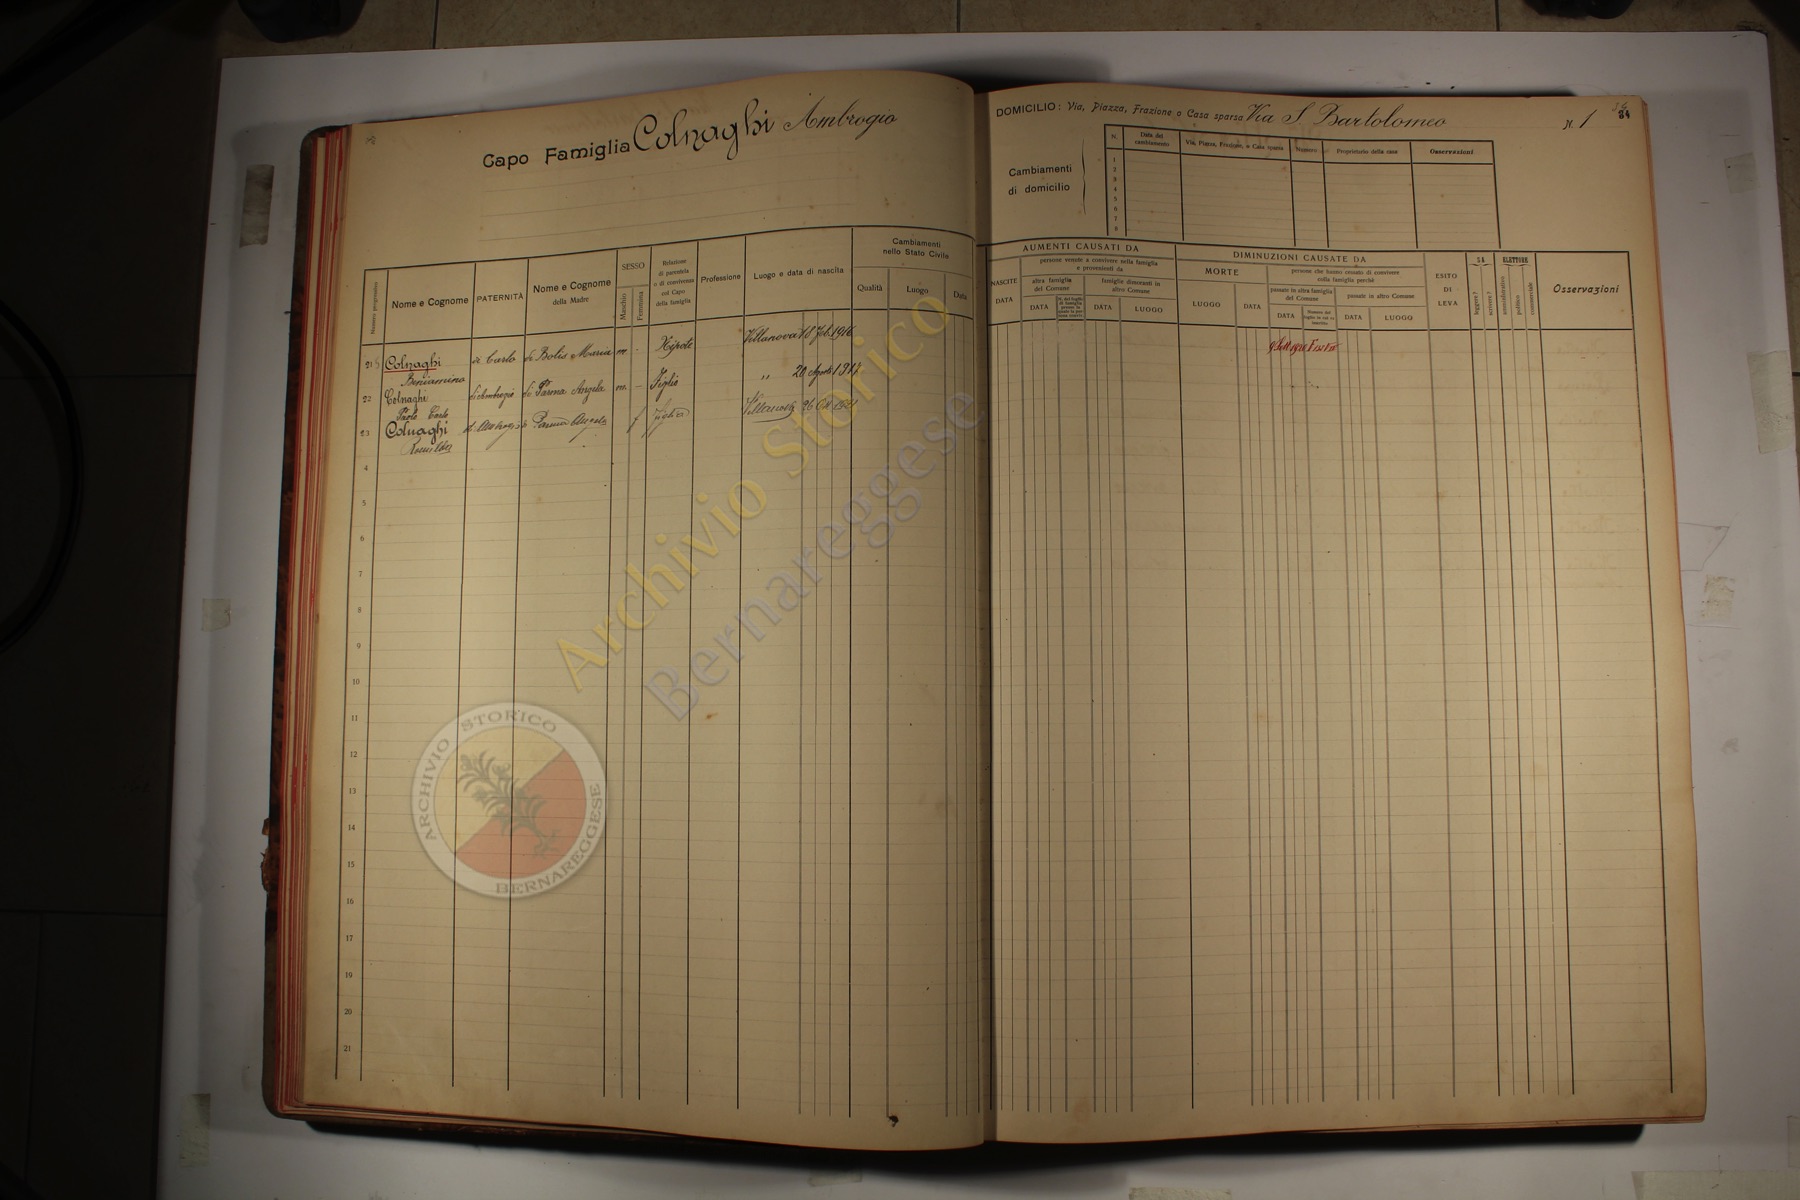 Capo Famiglia Colnaghi Ambrogio
DOMICILIO: Via, Piazza, Frazione o Casa sparsa Via S Bartolomeo N. 1
84
Cambiamenti
di domicilio
N.
Data del
cambiamento
Via, Piazza, Frazione, o Casa sparsa
Numero
Proprietario della casa
Osservazioni
1
2
3
4
5
6
7
8
Numero progressivo
Nome e Cognome
PATERNITÀ
Nome e Cognome
della Madre
SESSO
Maschio
Femmina
Relazione
di parentela
o di convivenza
col Capo
della famiglia
Professione
Luogo e data di nascita
Cambiamenti
nello Stato Civile
Qualità
Luogo
Data
AUMENTI CAUSATI DA
NASCITE
DATA
persone venute a convivere nella famiglia
e provenienti da
altra famiglia
del Comune
DATA
famiglie dimoranti in
altro Comune
DATA
LUOGO
DIMINUZIONI CAUSATE DA
MORTE
LUOGO
DATA
persone che hanno cessato di convivere
colla famiglia perchè
passate in altra famiglia
del Comune
DATA
passate in altro Comune
DATA
LUOGO
ESITO
DI
LEVA
SA
leggere?
scrivere?
ELETTORE
amministrativo
politico
commerciale
Osservazioni
21 Colnaghi di Carlo di Bolis Maria m - Nipote Villanova 1916
Beniamino
22 Colnaghi di Ambrogio di Parona Angela m - Figlio " 20 Agosto 1917
Paolo Carlo
23 Colnaghi di Ambrogio Parona Angela f Figlia Villanova 26
4
5
6
7
8
9
10
11
12
13
14
15
16
17
18
19
20
21
Archivio Storico
Bernareggese
ARCHIVIO STORICO
BERNAREGGESE